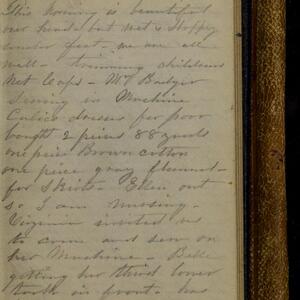 This morning is beautiful
over head but wet & sloppy
under feet - we are all
well - trimming childrens
Net Caps - Mrs Badger
Sewing on Machine
Calico dresses for poor
bought 2 pieces 88 yards
one piece Brown cotton
one piece gray flannel -
for Skirts - Ellen out
so I am nursing -
Virginia invited us
to come and sew on
her Machine - Belle
getting her third lower
tooth in front - has